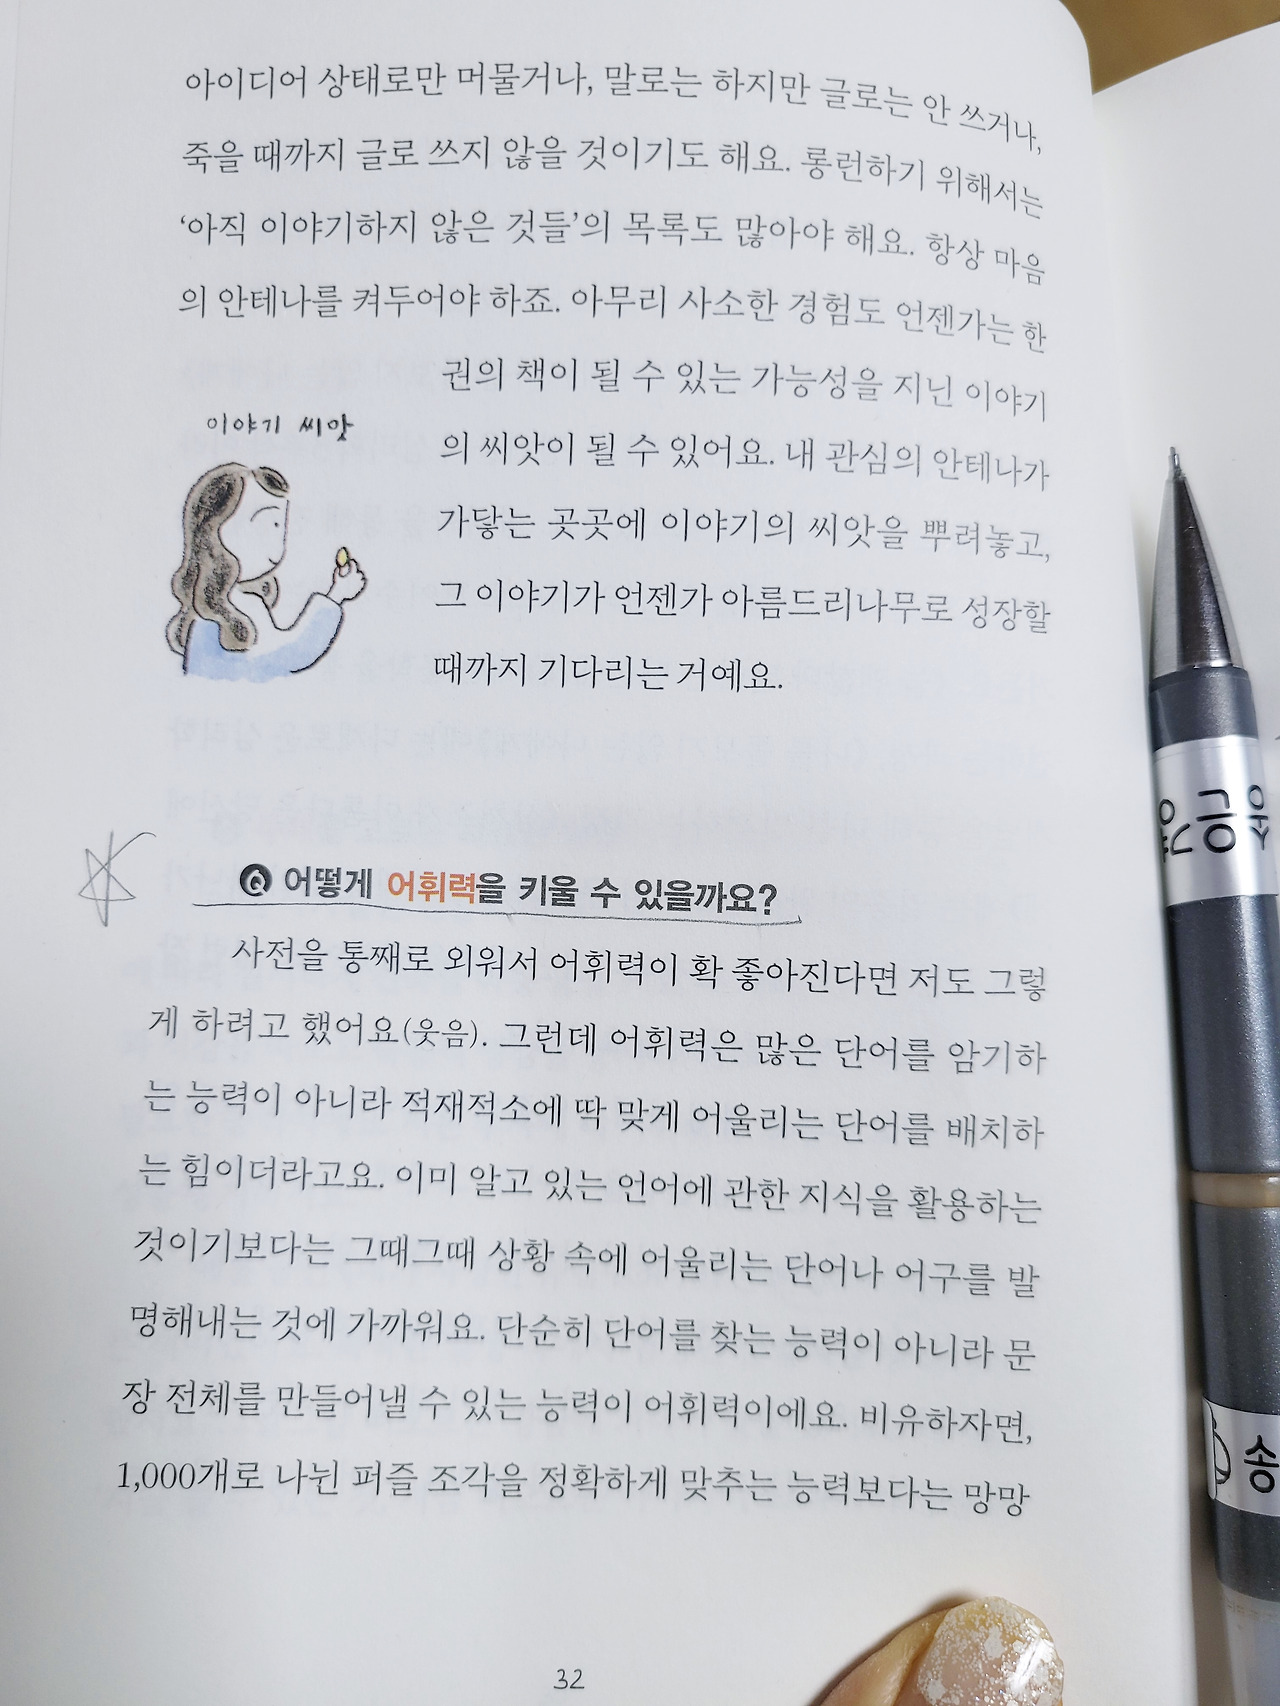 아이디어 상태로만 머물거나, 말로는 하지만 글로는 안 쓰거나,
죽을 때까지 글로 쓰지 않을 것이기도 해요. 롱런하기 위해서는
‘아직 이야기하지 않은 것들’의 목록도 많아야 해요. 항상 마음
의 안테나를 켜두어야 하죠. 아무리 사소한 경험도 언젠가는 한
권의 책이 될 수 있는 가능성을 지닌 이야기
의 씨앗이 될 수 있어요. 내 관심의 안테나가
가닿는 곳곳에 이야기의 씨앗을 뿌려놓고,
그 이야기가 언젠가 아름드리나무로 성장할
때까지 기다리는 거예요.
이야기 씨앗
Q 어떻게 어휘력을 키울 수 있을까요?
사전을 통째로 외워서 어휘력이 확 좋아진다면 저도 그렇
게 하려고 했어요(웃음). 그런데 어휘력은 많은 단어를 암기하
는 능력이 아니라 적재적소에 딱 맞게 어울리는 단어를 배치하
는 힘이더라고요. 이미 알고 있는 언어에 관한 지식을 활용하는
것이기보다는 그때그때 상황 속에 어울리는 단어나 어구를 발
명해내는 것에 가까워요. 단순히 단어를 찾는 능력이 아니라 문
장 전체를 만들어낼 수 있는 능력이 어휘력이에요. 비유하자면,
1,000개로 나뉜 퍼즐 조각을 정확하게 맞추는 능력보다는 망망
32
송